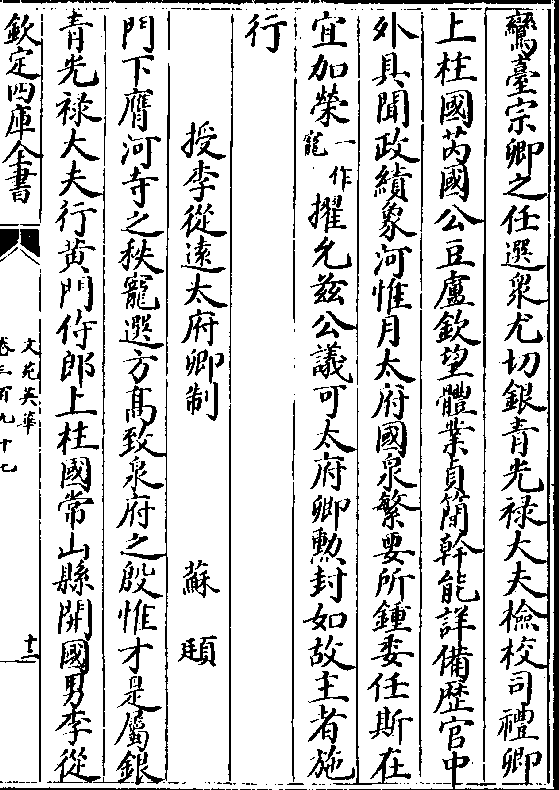 鸞臺宗卿之任選衆尤切銀青光祿大夫檢校司禮卿
上柱國芮國公豆盧欽望體業貞簡幹能詳備歴官中
外具聞政績象河惟月太府國泉繁要所鍾委任斯在
宜加榮一作寵擢允兹公議可太府卿勲封如故主者施
行
授李從逺太府卿制 蘇頲
門下膺河寺之秩寵選方髙致泉府之殷惟才是屬銀
青光祿大夫行黄門侍郎上柱國常山縣開國男李從
欽定四庫全書
文苑英華
卷三百九十七
十二